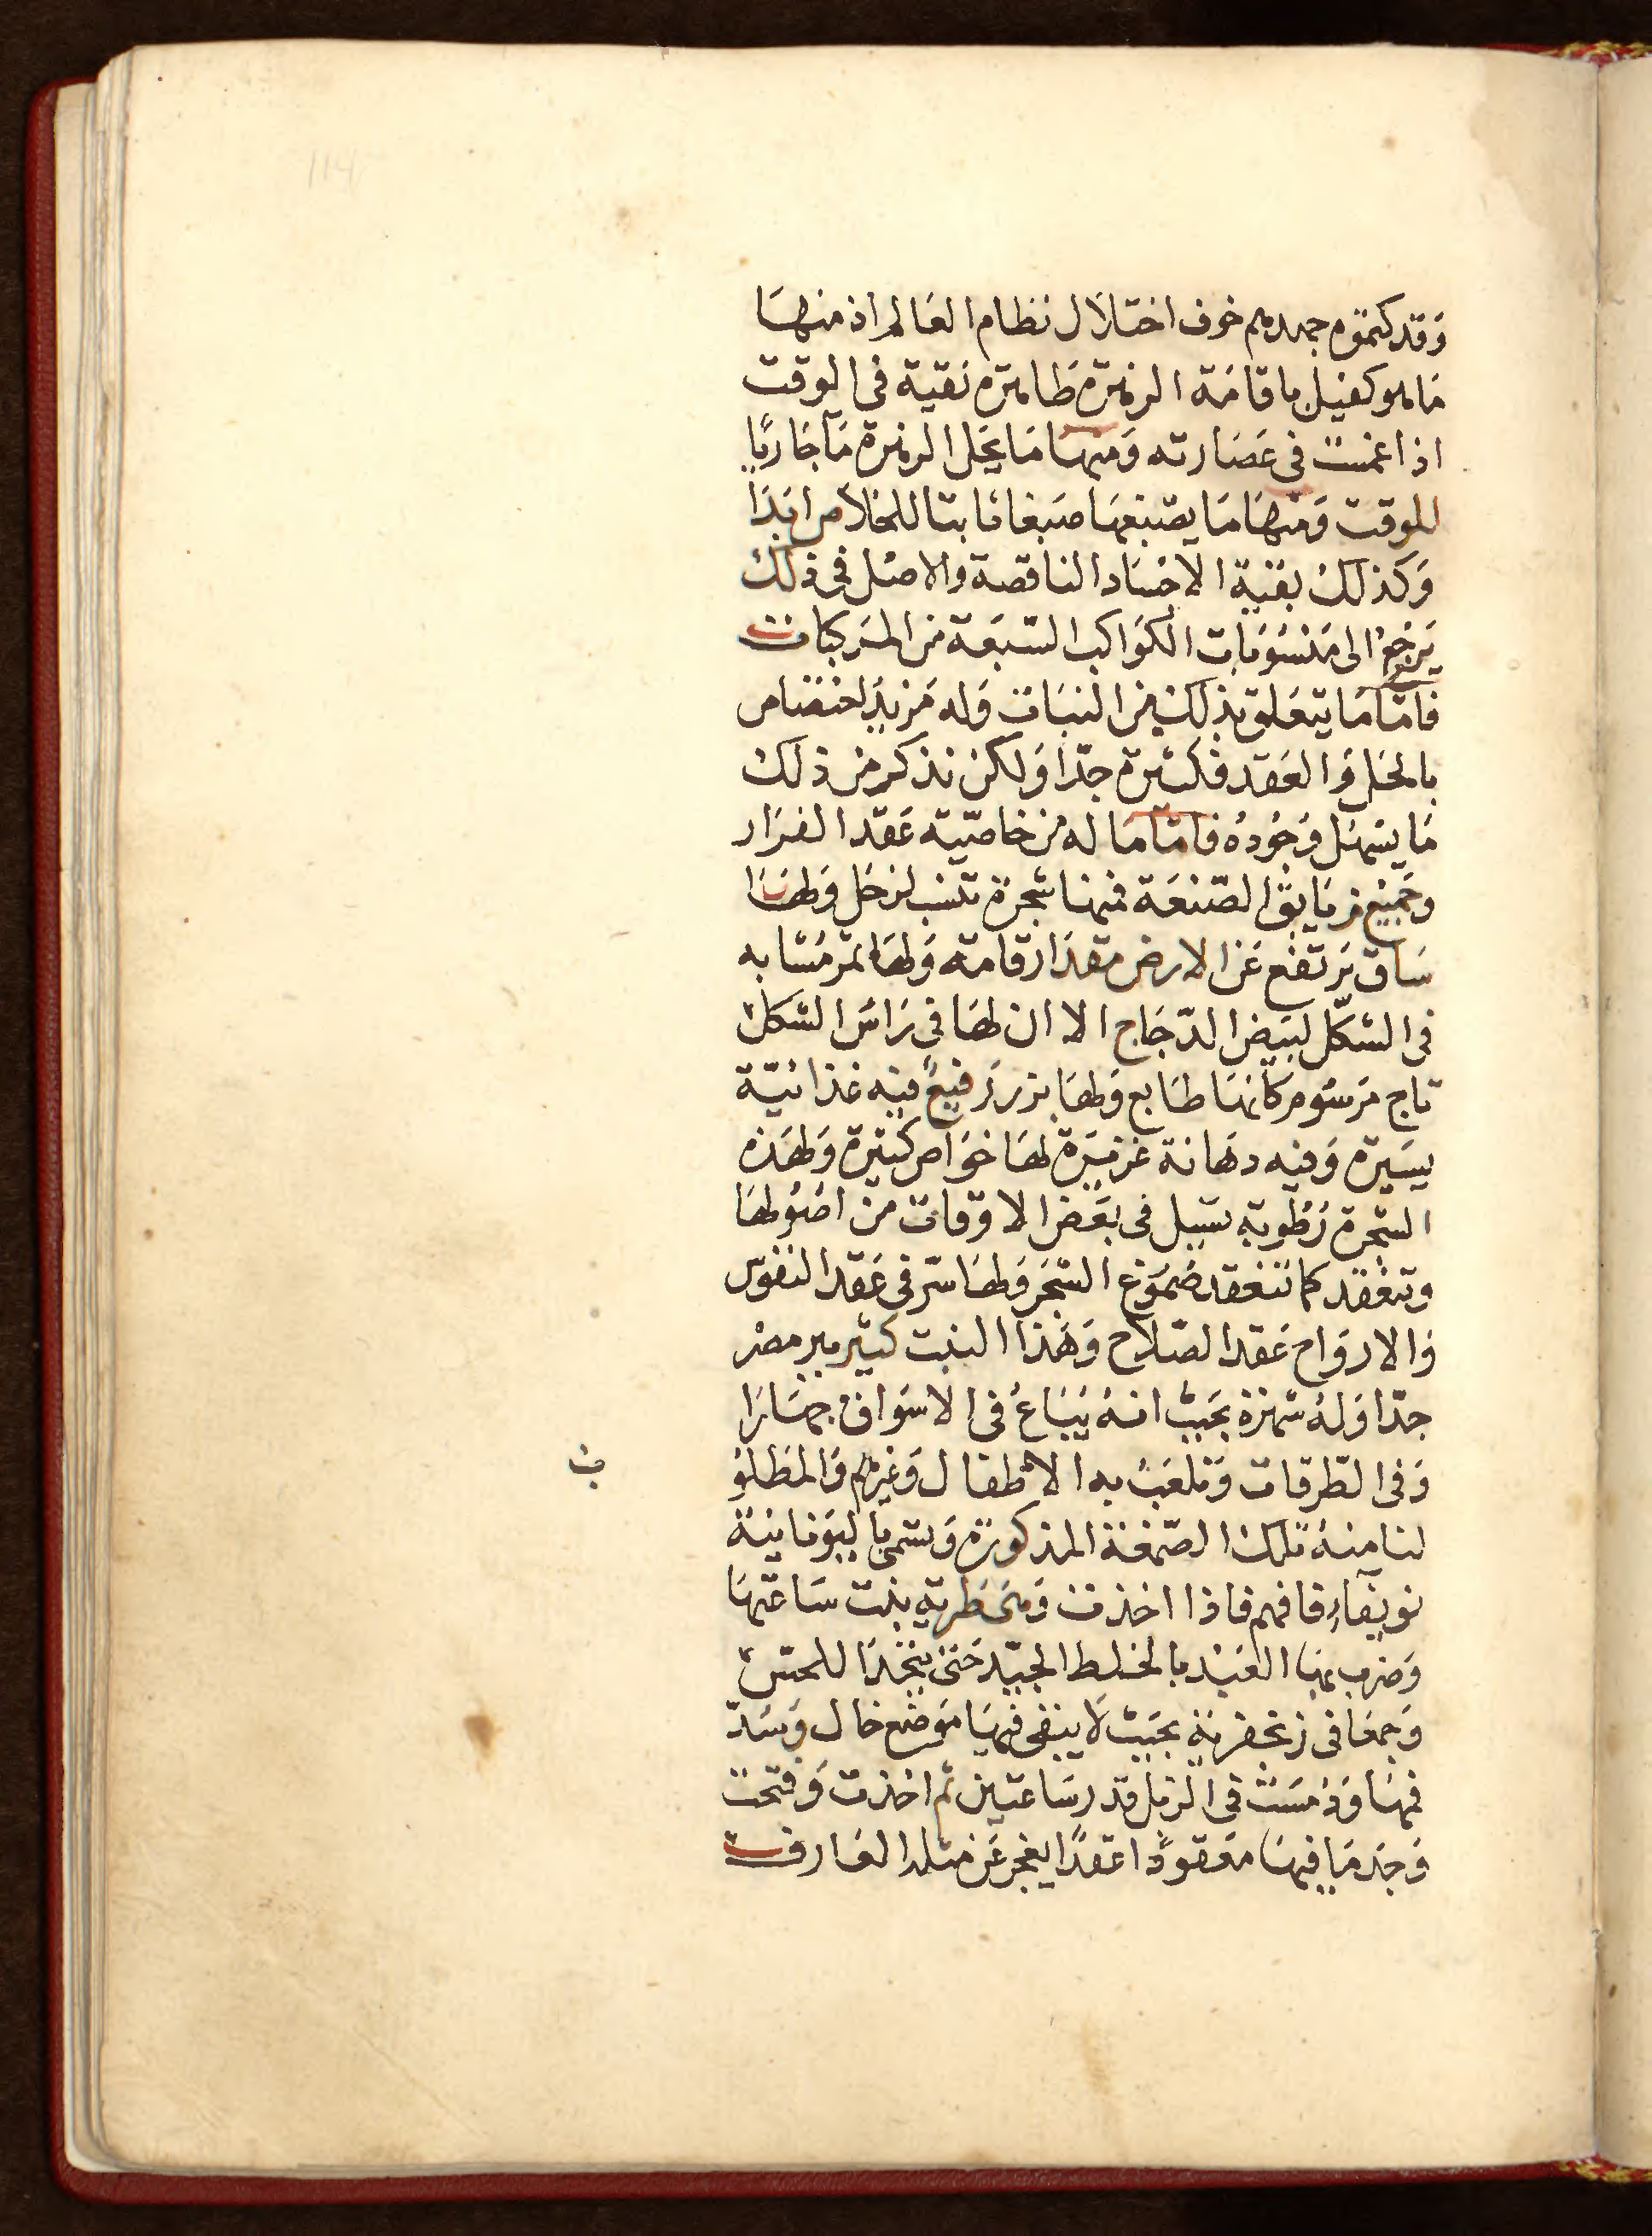 وقد كتموه جهدهم خوف اختلال نظام العالم اذ منها
ما هو كفيل باقامة الزهرة طاهرة نقية في الوقت
اذا غمست في عصارته ومنها ما يحل الزهرة مآ جاريا
للوقت ومنها ما يصبغها صبغا ثابتا للخلاص ابدا
وكذلك بقية الاجساد الناقصة والاصل في ذلك
يرجع الى منسوبات الكواكب السبعة من المركبات
فاما ما يتعلق بذلك من النبات وله مزيد اختصاص
بالحل والعقد فكثيرة جدا ولكن نذكر من ذلك
ما يسهل وجوده فاما ما له من خاصية عقد الفرار
وجميع زيابق الصنعة فمنها شجرة تنسب لزحل ولها
ساق يرتفع عن الارض مقدار قامة ولها ثمر مشابه
في الشكل لبيض الدجاج الا ان لها في راس الشكل
تاج مرسوم كانها طابع ولها بزر رفيع فيه غذائية
يسيرة وفيه دهانة غزيرة لها خواص كثيرة ولهذه
الشجرة رطوبة تسيل في بعض الاوقات من اصولها
وتنعقد كما تنعقد صموغ الشجر ولها سر في عقد النفوس
والارواح عقد الصلاح وهذا النبت كثير ببر مصر
جدا وله شهرة بحيث انه يباع في الاسواق جهارا
وفي الطرقات وتلعب به الاطفال وغيرهم والمطلو
ب
لنا منه تلك الصمغة المذكورة وتسمى باليونانية
نوبقاء فافهم فاذا اخذت وهى طرية بنت ساعتها
وضرب بها العبد بالخلط الجيد حتى يتخذا للحس
وجمعا في زنجفرية بحيث لا يبقى فيها موضع خال وسد
فمها ودمست في الزبل قدر ساعتين ثم اخذت وفتحت
وجد ما فيها معقودا عقدا يعجز عن مثله العارف